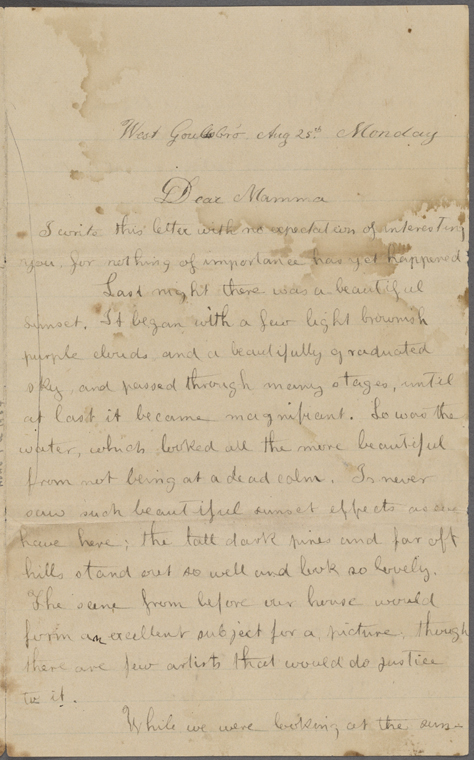 West Gouldsbro Aug 25th Monday
Dear Mamma
I write this letter with no expectation of interesting
you, for nothing of importance has yet happened
Last night there was a beautiful
sunset. It began with a few light brownish
purple clouds and a beautifully graduated
sky, and passed through many stages, until
at last it became magnificant. So was the
water, which looked all the more beautiful
from not being at a dead calm. I never
saw such beautiful sunset effects as we
have here; the tall dark pines and far off
hills stand out so well and look so lovely.
The scene from before our house would
form an excellent subject for a picture, though
there are few artists that would do justice
to it.
While we were looking at the sun-